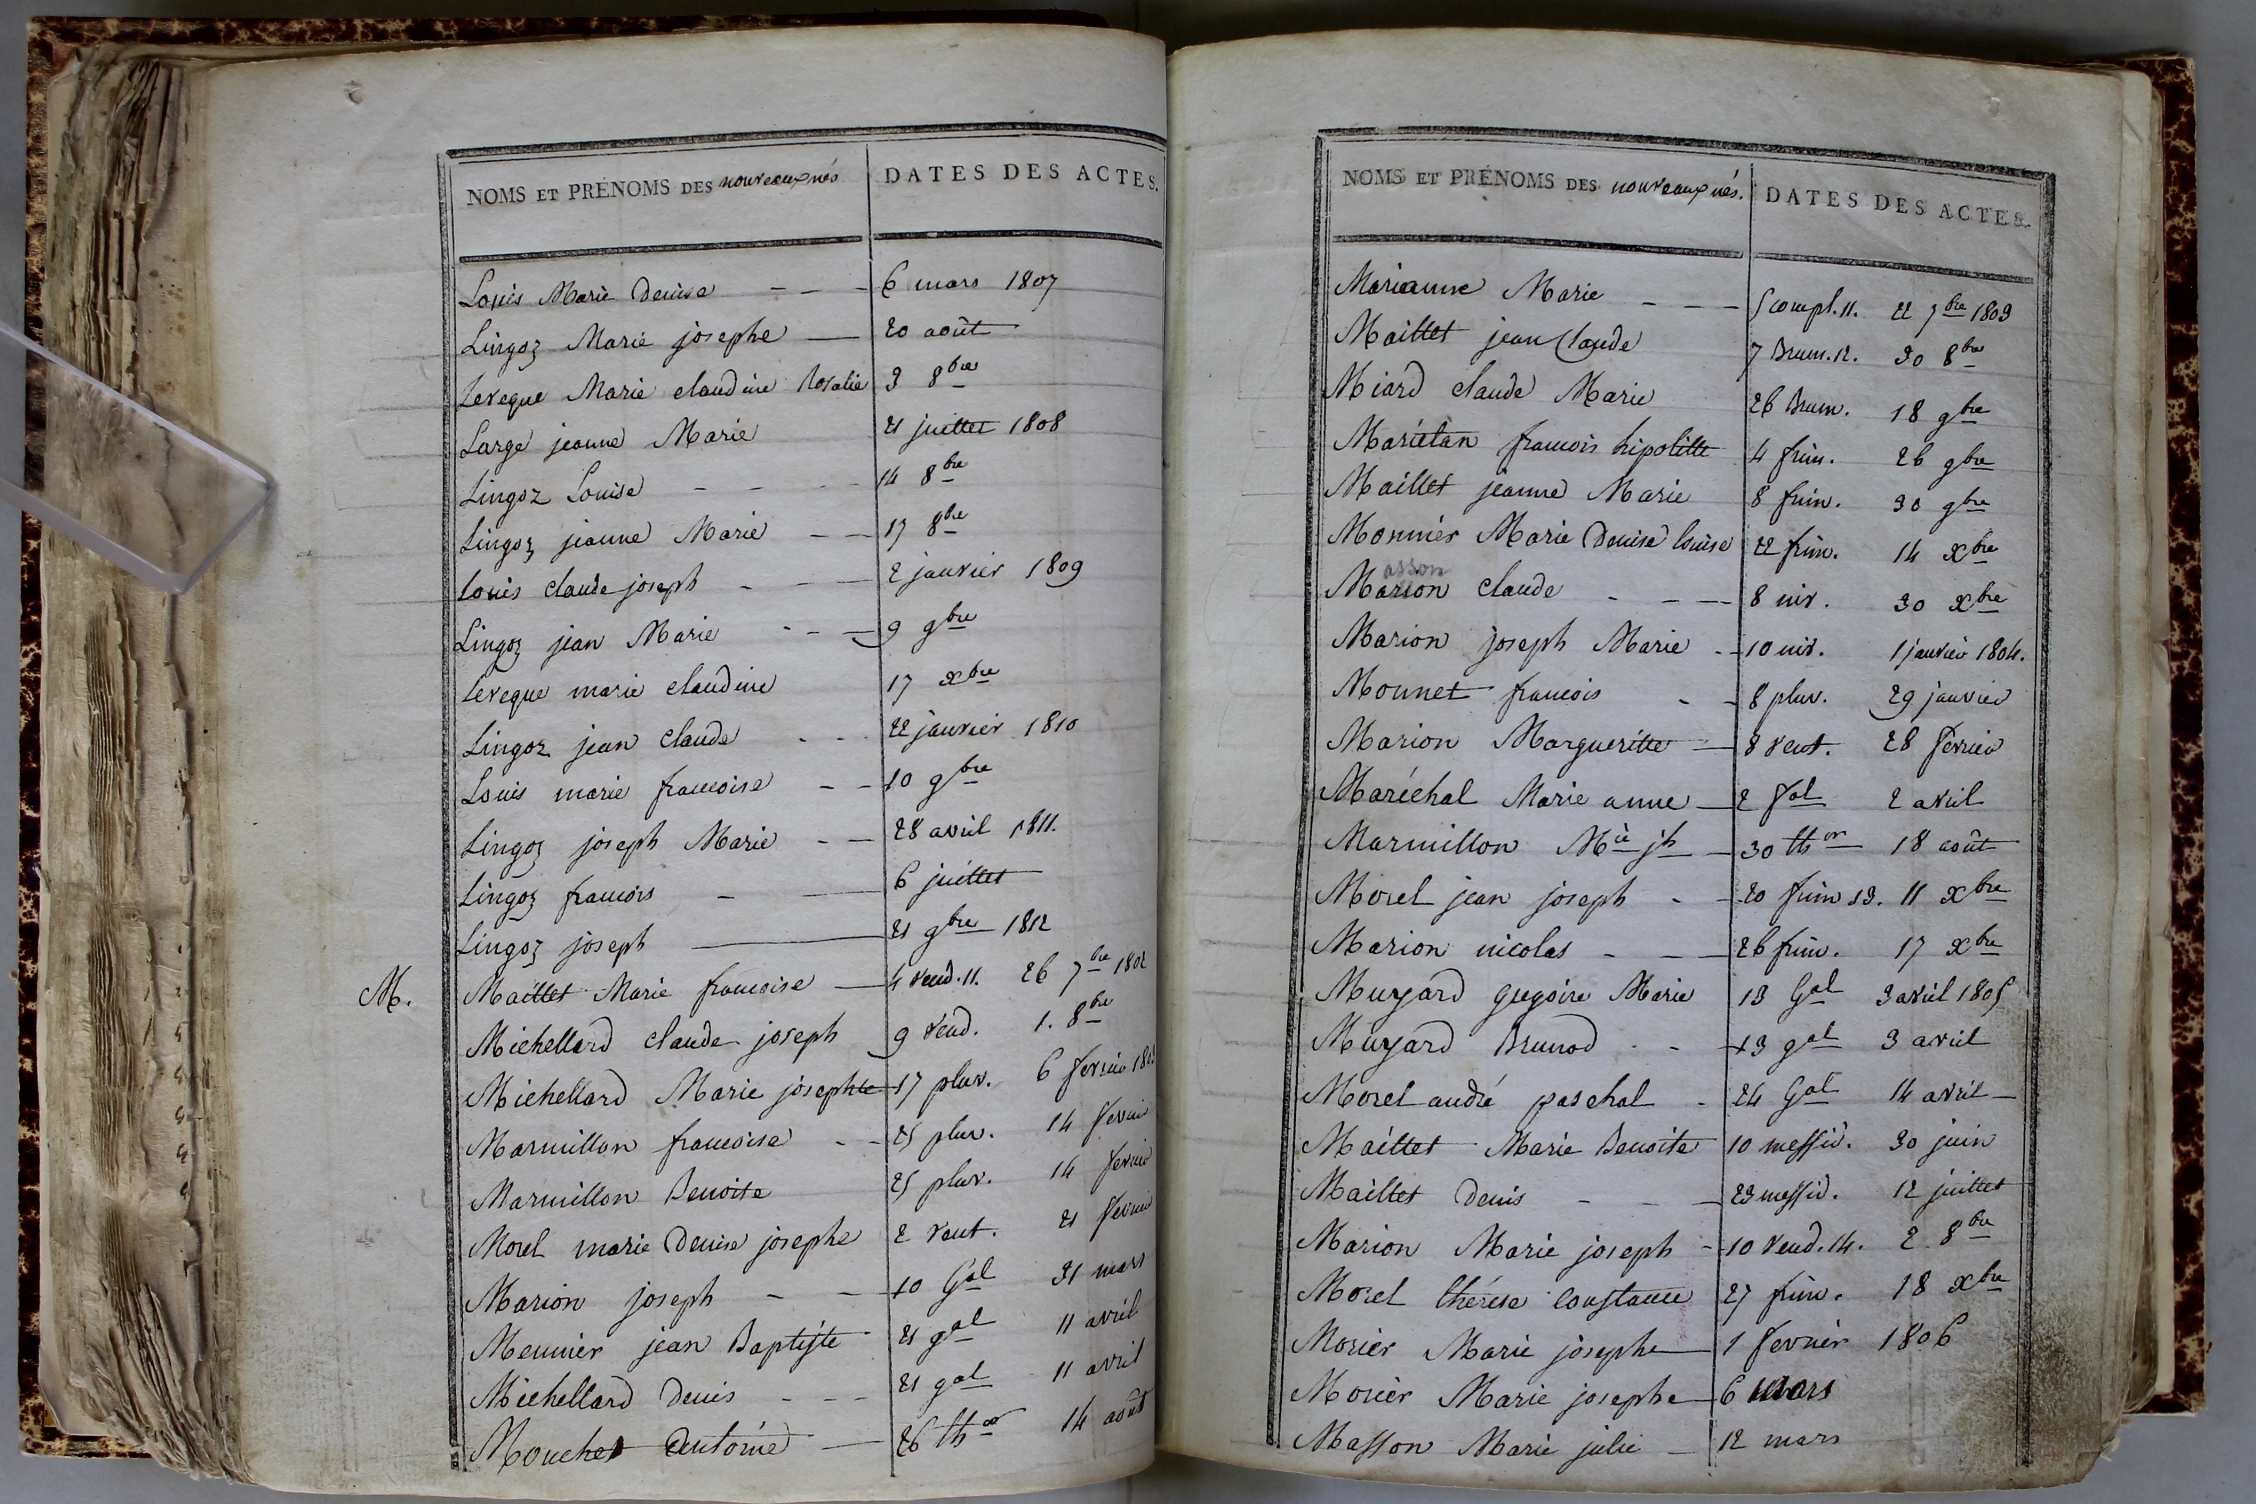 NOMS ET PRÉNOMS DES nouveaux nés DATES DES ACTES.
Louis Marie Denise - - - 6 mars 1807
Lingoz Marie josephe — 20 août
Leveque Marie claudine Rosalie 3 8bre
Large jeanne Marie 21 juillet 1808
Lingoz Louise - - - 14 8bre
Lingoz jeanne Marie - - 17 8bre
Louis claude joseph - - 2 janvier 1809
Lingoz jean Marie - - - 9 9bre
Leveque marie claudine 17 xbre
Lingoz jean claude - - - 22 janvier 1810
Louis marie francoise - - 10 9bre
Lingoz joseph Marie - - 28 avril 1811.
Lingoz francois - — 6 juillet
Lingoz joseph — 21 9bre 1812
M. Maillet Marie francoise — 4 vend. 11. 26 7bre 1802
Michellard claude joseph 9 vend. 1. 8bre
Michellard Marie josephte 17 pluv. 6 fevrier
Marmillon francoise - - 25 pluv. 14 fevrier
Marmillon Benoite 25 pluv. 14 fevrier
Morel marie Denise josephe 2 vent. 21 fevrier
Marion joseph - - 10 Gal 31 mars
Meunier jean Baptiste 21 gal 11 avril
Michellard Denis - - - 21 gal 11 avril
Mouchet Antoine — 26 thor 14 août
NOMS ET PRÉNOMS DES nouveaux nés. DATES DES ACTES.
Marianne Marie - - - 5 compl. 11. 22 7bre 1803
Maillet jean Claude 7 Brum. 12. 30 8bre
Miard claude Marie 26 Brum. 18 9bre
Mariétan francois hipolitte 4 frim. 26 9bre
Maillet jeanne Marie 8 frim. 30 9bre
Monnier Marie Denise louise 22 frim. 14 xbre
asson
Marion claude - - - 8 niv. 30 xbre
Marion joseph Marie - - 10 niv. 1 janvier 1804.
Monnet francois - - 8 pluv. 29 janvier
Marion Margueritte — 8 vent. 28 fevrier
Maréchal Marie anne — 2 fal 2 avril
Marmillon Mie jh — 30 thor 18 août
Morel jean joseph - - 20 frim 13. 11 xbre
Marion nicolas - - - 26 frim. 17 xbre
Muyard gregoire Marie 13 Gal 3 avril 1805
Muyard Brunod - - 13 gal 3 avril
Morel andré paschal - 24 Gal 14 avril —
Maillet Marie Benoite 10 messid. 30 juin
Maillet Denis - - - 23 messid. 12 juillet
Marion Marie joseph - 10 vend. 14. 2 8bre
Morel thérése constance 27 frim. 18 xbre
Morier Marie josephe — 1 fevrier 1806
Morier Marie josephe — 6 mars
Masson Marie julie — 12 mars